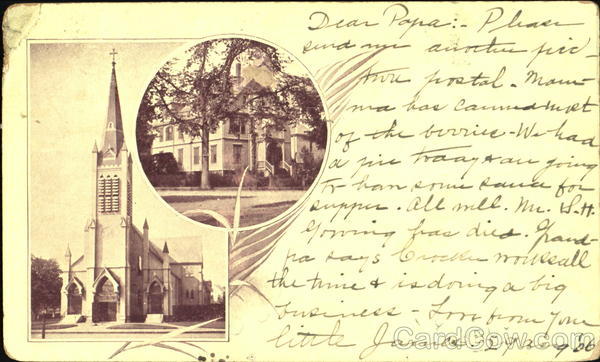 Dear Papa:- Please
send me another pic-
ture postal. Mam-
ma has canned most
of the berries - We had
a pie today & are going
to have some sauce for
supper. All well. Mr. S.H.
Gowing has died. Grand-
pa says Crocker works all
the time & is doing a big
business - Love from your
little
CardCow.com